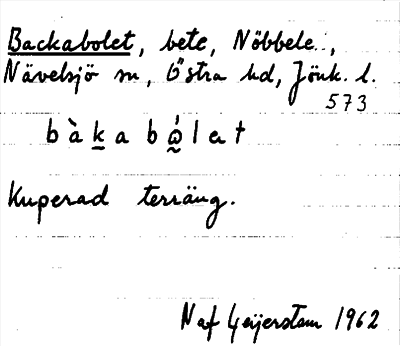 Backabolet, bete, Nöbbele,
Nävelsjö sn, Östra hd, Jönk. l.
573
bàkabólet
Kuperad terräng.
Naf Geijerstam 1962